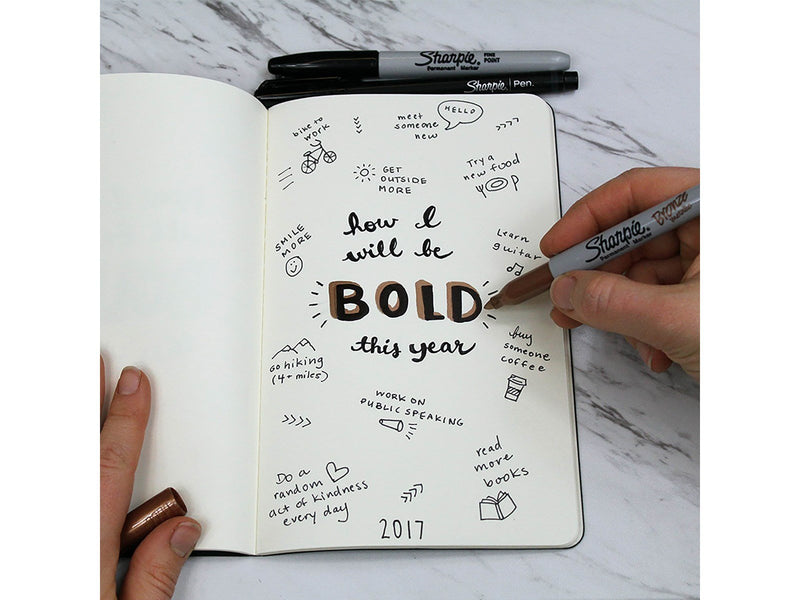 Sharpie®
FINE
POINT
Permanent Marker
Sharpie® Pen.
bike to
work
meet
someone
new
HELLO
GET
OUTSIDE
MORE
Try a
new food
SMILE
MORE
how I
will be
BOLD
this year
Learn
guitar
Sharpie®
Permanent Marker
Bronze
go hiking
(4+ miles)
buy
someone
coffee
WORK ON
PUBLIC SPEAKING
Do a
random
act of kindness
every day
read
more
books
2017